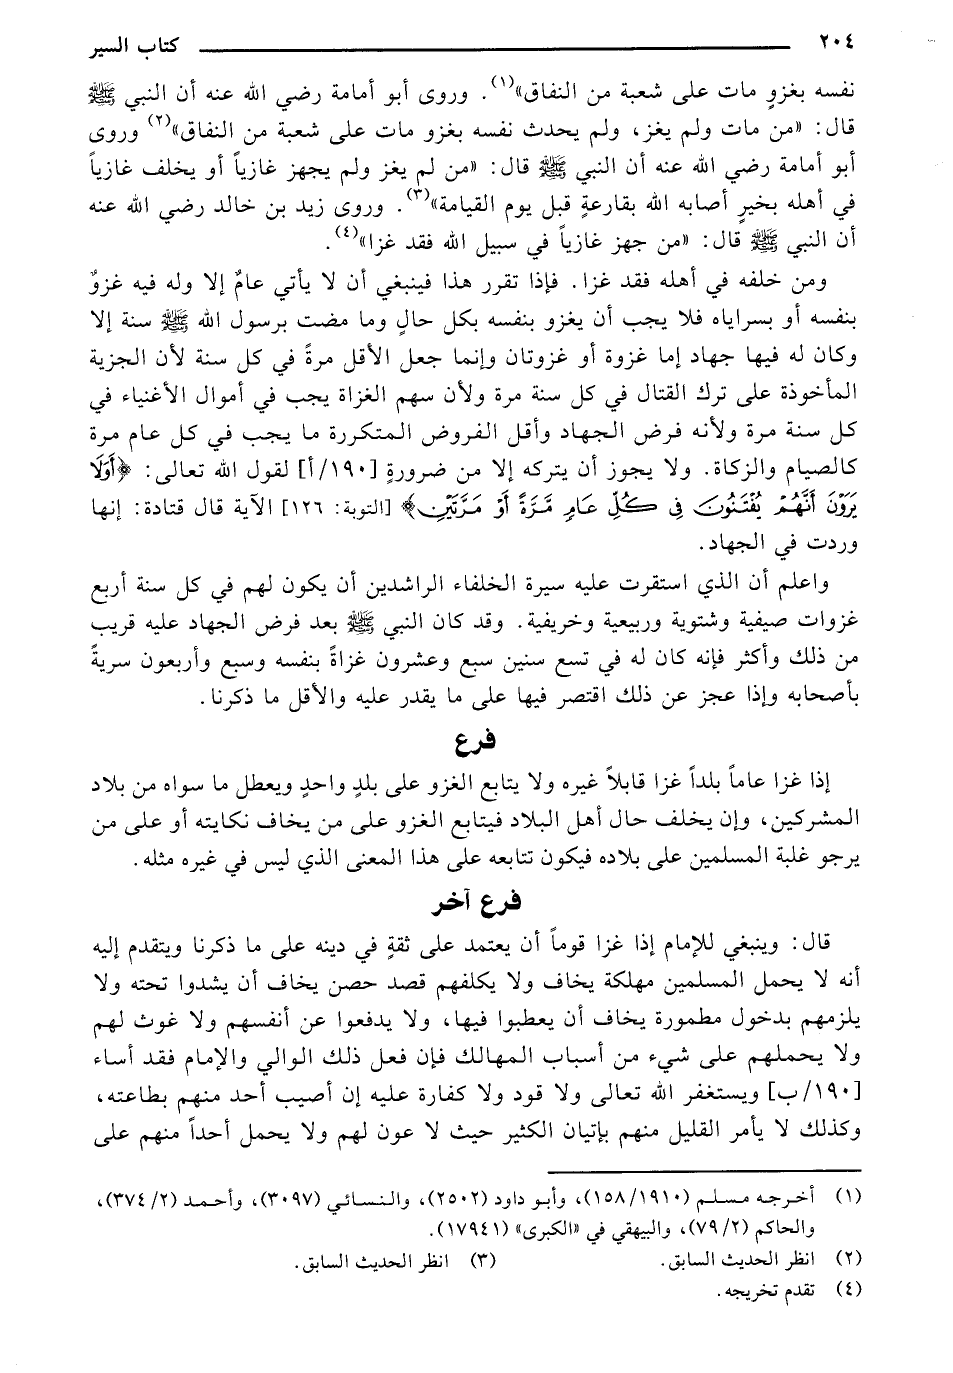 ٢٠٤ كتاب السير
نفسه بغزوٍ مات على شعبة من النفاق»(١). وروى أبو أمامة رضي الله عنه أن النبي ﷺ
قال: «من مات ولم يغز، ولم يحدث نفسه بغزو مات على شعبة من النفاق»(٢) وروى
أبو أمامة رضي الله عنه أن النبي ﷺ قال: «من لم يغز ولم يجهز غازياً أو يخلف غازياً
في أهله بخيرٍ أصابه الله بقارعةٍ قبل يوم القيامة»(٣). وروى زيد بن خالد رضي الله عنه
أن النبي ﷺ قال: «من جهز غازياً في سبيل الله فقد غزا»(٤).
ومن خلفه في أهله فقد غزا. فإذا تقرر هذا فينبغي أن لا يأتي عامٌ إلا وله فيه غزوٌ
بنفسه أو بسراياه فلا يجب أن يغزو بنفسه بكل حالٍ وما مضت برسول الله ﷺ سنة إلا
وكان له فيها جهاد إما غزوة أو غزوتان وإنما جعل الأقل مرةً في كل سنة لأن الجزية
المأخوذة على ترك القتال في كل سنة مرة ولأن سهم الغزاة يجب في أموال الأغنياء في
كل سنة مرة ولأنه فرض الجهاد وأقل الفروض المتكررة ما يجب في كل عام مرة
كالصيام والزكاة. ولا يجوز أن يتركه إلا من ضرورةٍ [١٩٠/أ] لقول الله تعالى: ﴿أَوَلَا
يَرَوْنَ أَنَّهُمْ يُفْتَنُونَ فِى كُلِّ عَامٍ مَّرَّةً أَوْ مَرَّتَيْنِ﴾ [التوبة: ١٢٦] الآية قال قتادة: إنها
وردت في الجهاد.
واعلم أن الذي استقرت عليه سيرة الخلفاء الراشدين أن يكون لهم في كل سنة أربع
غزوات صيفية وشتوية وربيعية وخريفية. وقد كان النبي ﷺ بعد فرض الجهاد عليه قريب
من ذلك وأكثر فإنه كان له في تسع سنين سبع وعشرون غزاةً بنفسه وسبع وأربعون سريةً
بأصحابه وإذا عجز عن ذلك اقتصر فيها على ما يقدر عليه والأقل ما ذكرنا.
فرع
إذا غزا عاماً بلداً غزا قابلاً غيره ولا يتابع الغزو على بلدٍ واحدٍ ويعطل ما سواه من بلاد
المشركين، وإن يخلف حال أهل البلاد فيتابع الغزو على من يخاف نكايته أو على من
يرجو غلبة المسلمين على بلاده فيكون تتابعه على هذا المعنى الذي ليس في غيره مثله.
فرع آخر
قال: وينبغي للإمام إذا غزا قوماً أن يعتمد على ثقةٍ في دينه على ما ذكرنا ويتقدم إليه
أنه لا يحمل المسلمين مهلكة يخاف ولا يكلفهم قصد حصن يخاف أن يشدوا تحته ولا
يلزمهم بدخول مطمورة يخاف أن يعطبوا فيها، ولا يدفعوا عن أنفسهم ولا غوث لهم
ولا يحملهم على شيء من أسباب المهالك فإن فعل ذلك الوالي والإمام فقد أساء
[١٩٠/ب] ويستغفر الله تعالى ولا قود ولا كفارة عليه إن أصيب أحد منهم بطاعته،
وكذلك لا يأمر القليل منهم بإتيان الكثير حيث لا عون لهم ولا يحمل أحداً منهم على
(١) أخرجه مسلم (١٥٨/١٩١٠)، وأبو داود (٢٥٠٢)، والنسائي (٣٠٩٧)، وأحمد (٣٧٤/٢)،
والحاكم (٧٩/٢)، والبيهقي في «الكبرى» (١٧٩٤١).
(٢) انظر الحديث السابق. (٣) انظر الحديث السابق.
(٤) تقدم تخريجه.